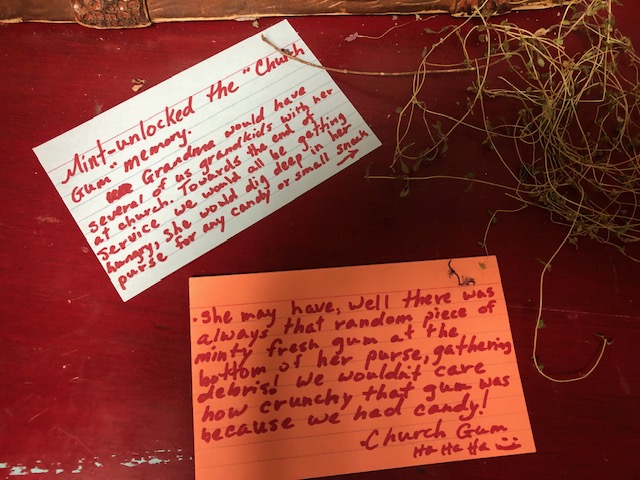 Mint-unlocked the "Church
Gum" memory.
Grandma would have
several of us grandkids with her
at church. Towards the end of
service we would all be getting
hungry, she would dig deep in her
purse for any candy or small snack
→
·She may have, well there was
always that random piece of
minty fresh gum at the
bottom of her purse, gathering
debris! We wouldn't care
how crunchy that gum was
because we had candy!
·Church Gum
Ha Ha Ha